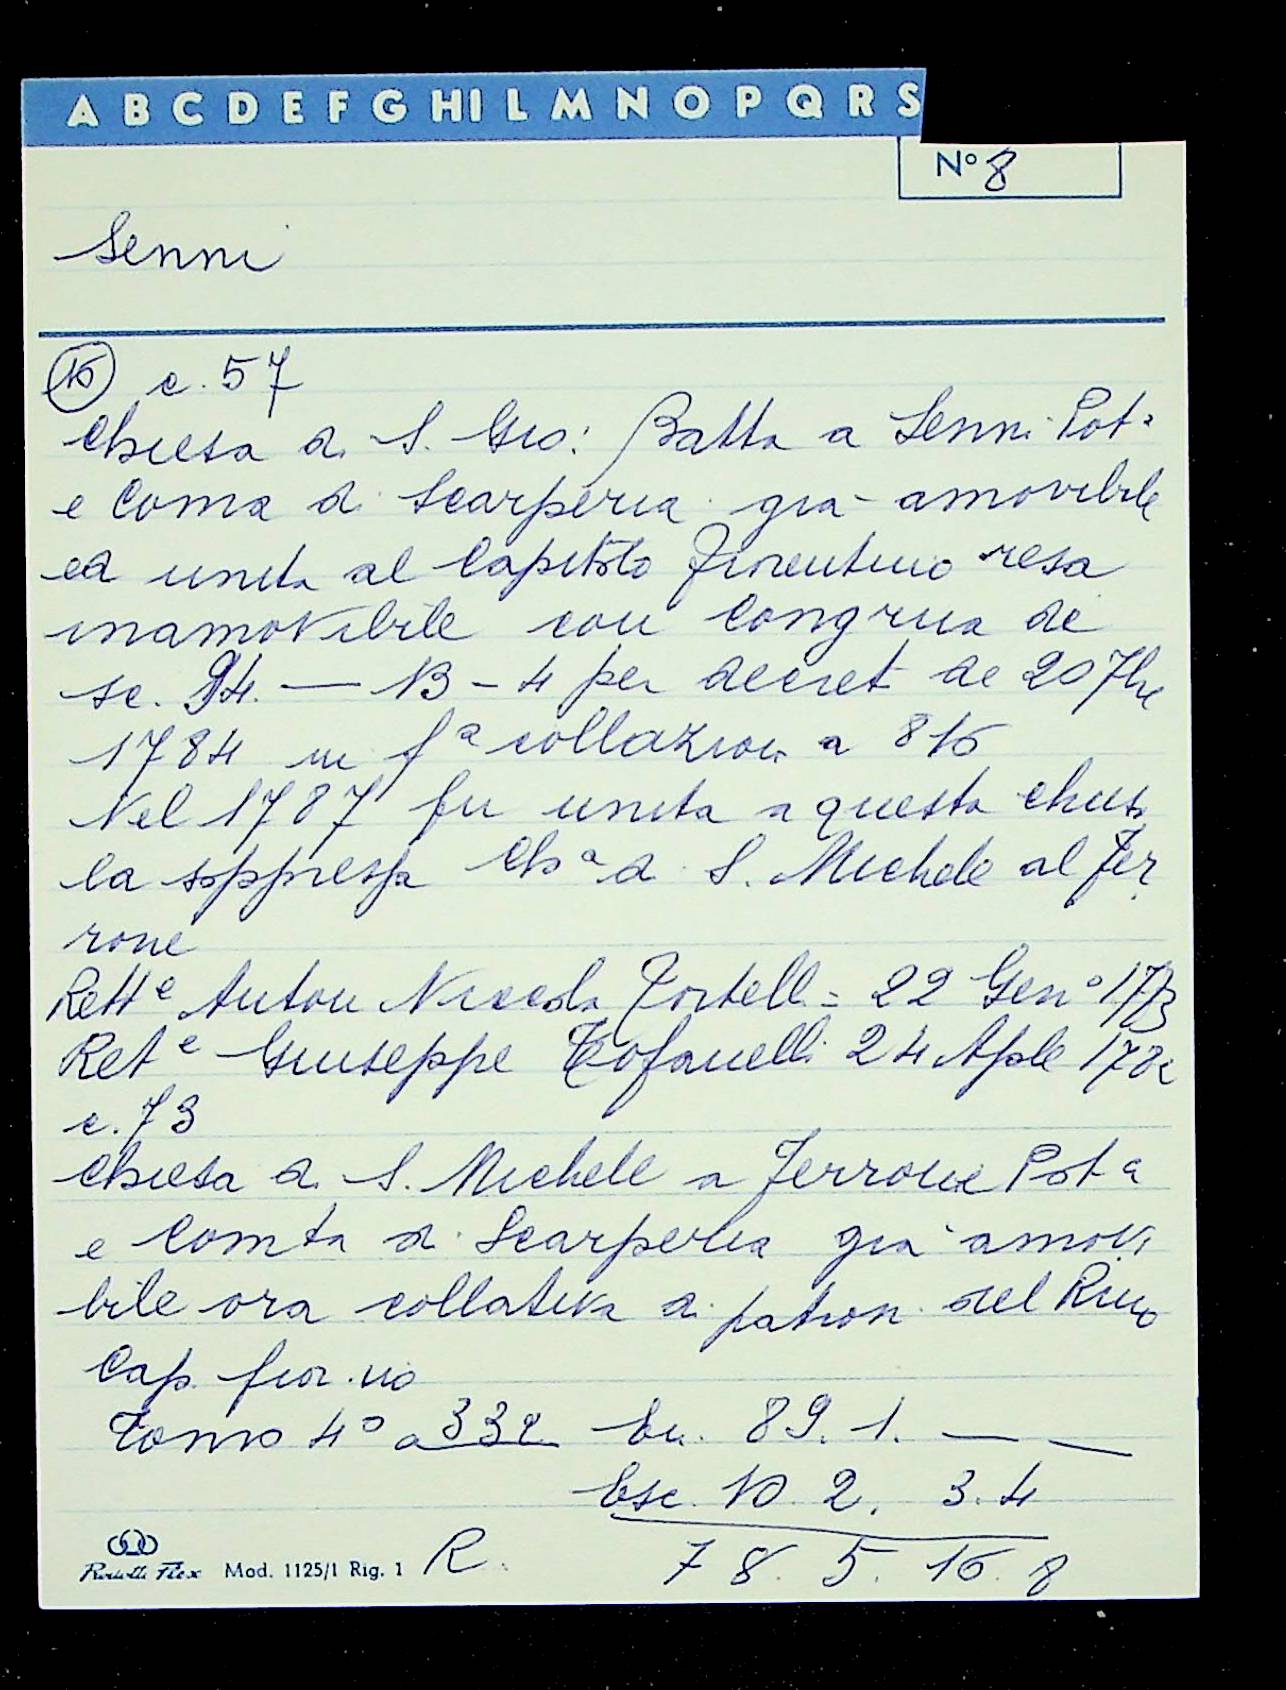 A B C D E F G HI L M N O P Q R S
N° 8
Senni
16 c. 57
Chiesa di S. Gio: Batta a Senni Pot.
e Coma di Scarperia già amovibile
ed unita al Capitolo fiorentino resa
inamovibile con Congrua di
sc. 94. — 13 - 4 per decret de 20 7bre
1784 in fa collazion a 816
Nel 1787 fu unita a questa chiesa
la soppressa Cha di S. Michele al Fer
rone
Rette Anton Niccola Tortelli = 22 Gen° 1773
Rete Giuseppe Tofanelli 24 Aple
c. 73
Chiesa di S. Michele a Ferrone Pota
e Comta di Scarperia già amovi
bile ora collativa di patron. del Rmo
Cap. fior.no
Tomo 4° a 332 En. 89. 1. — —
Esc. 10. 2. 3. 4
78. 5. 16. 8
Mod. 1125/1 Rig. 1 R.